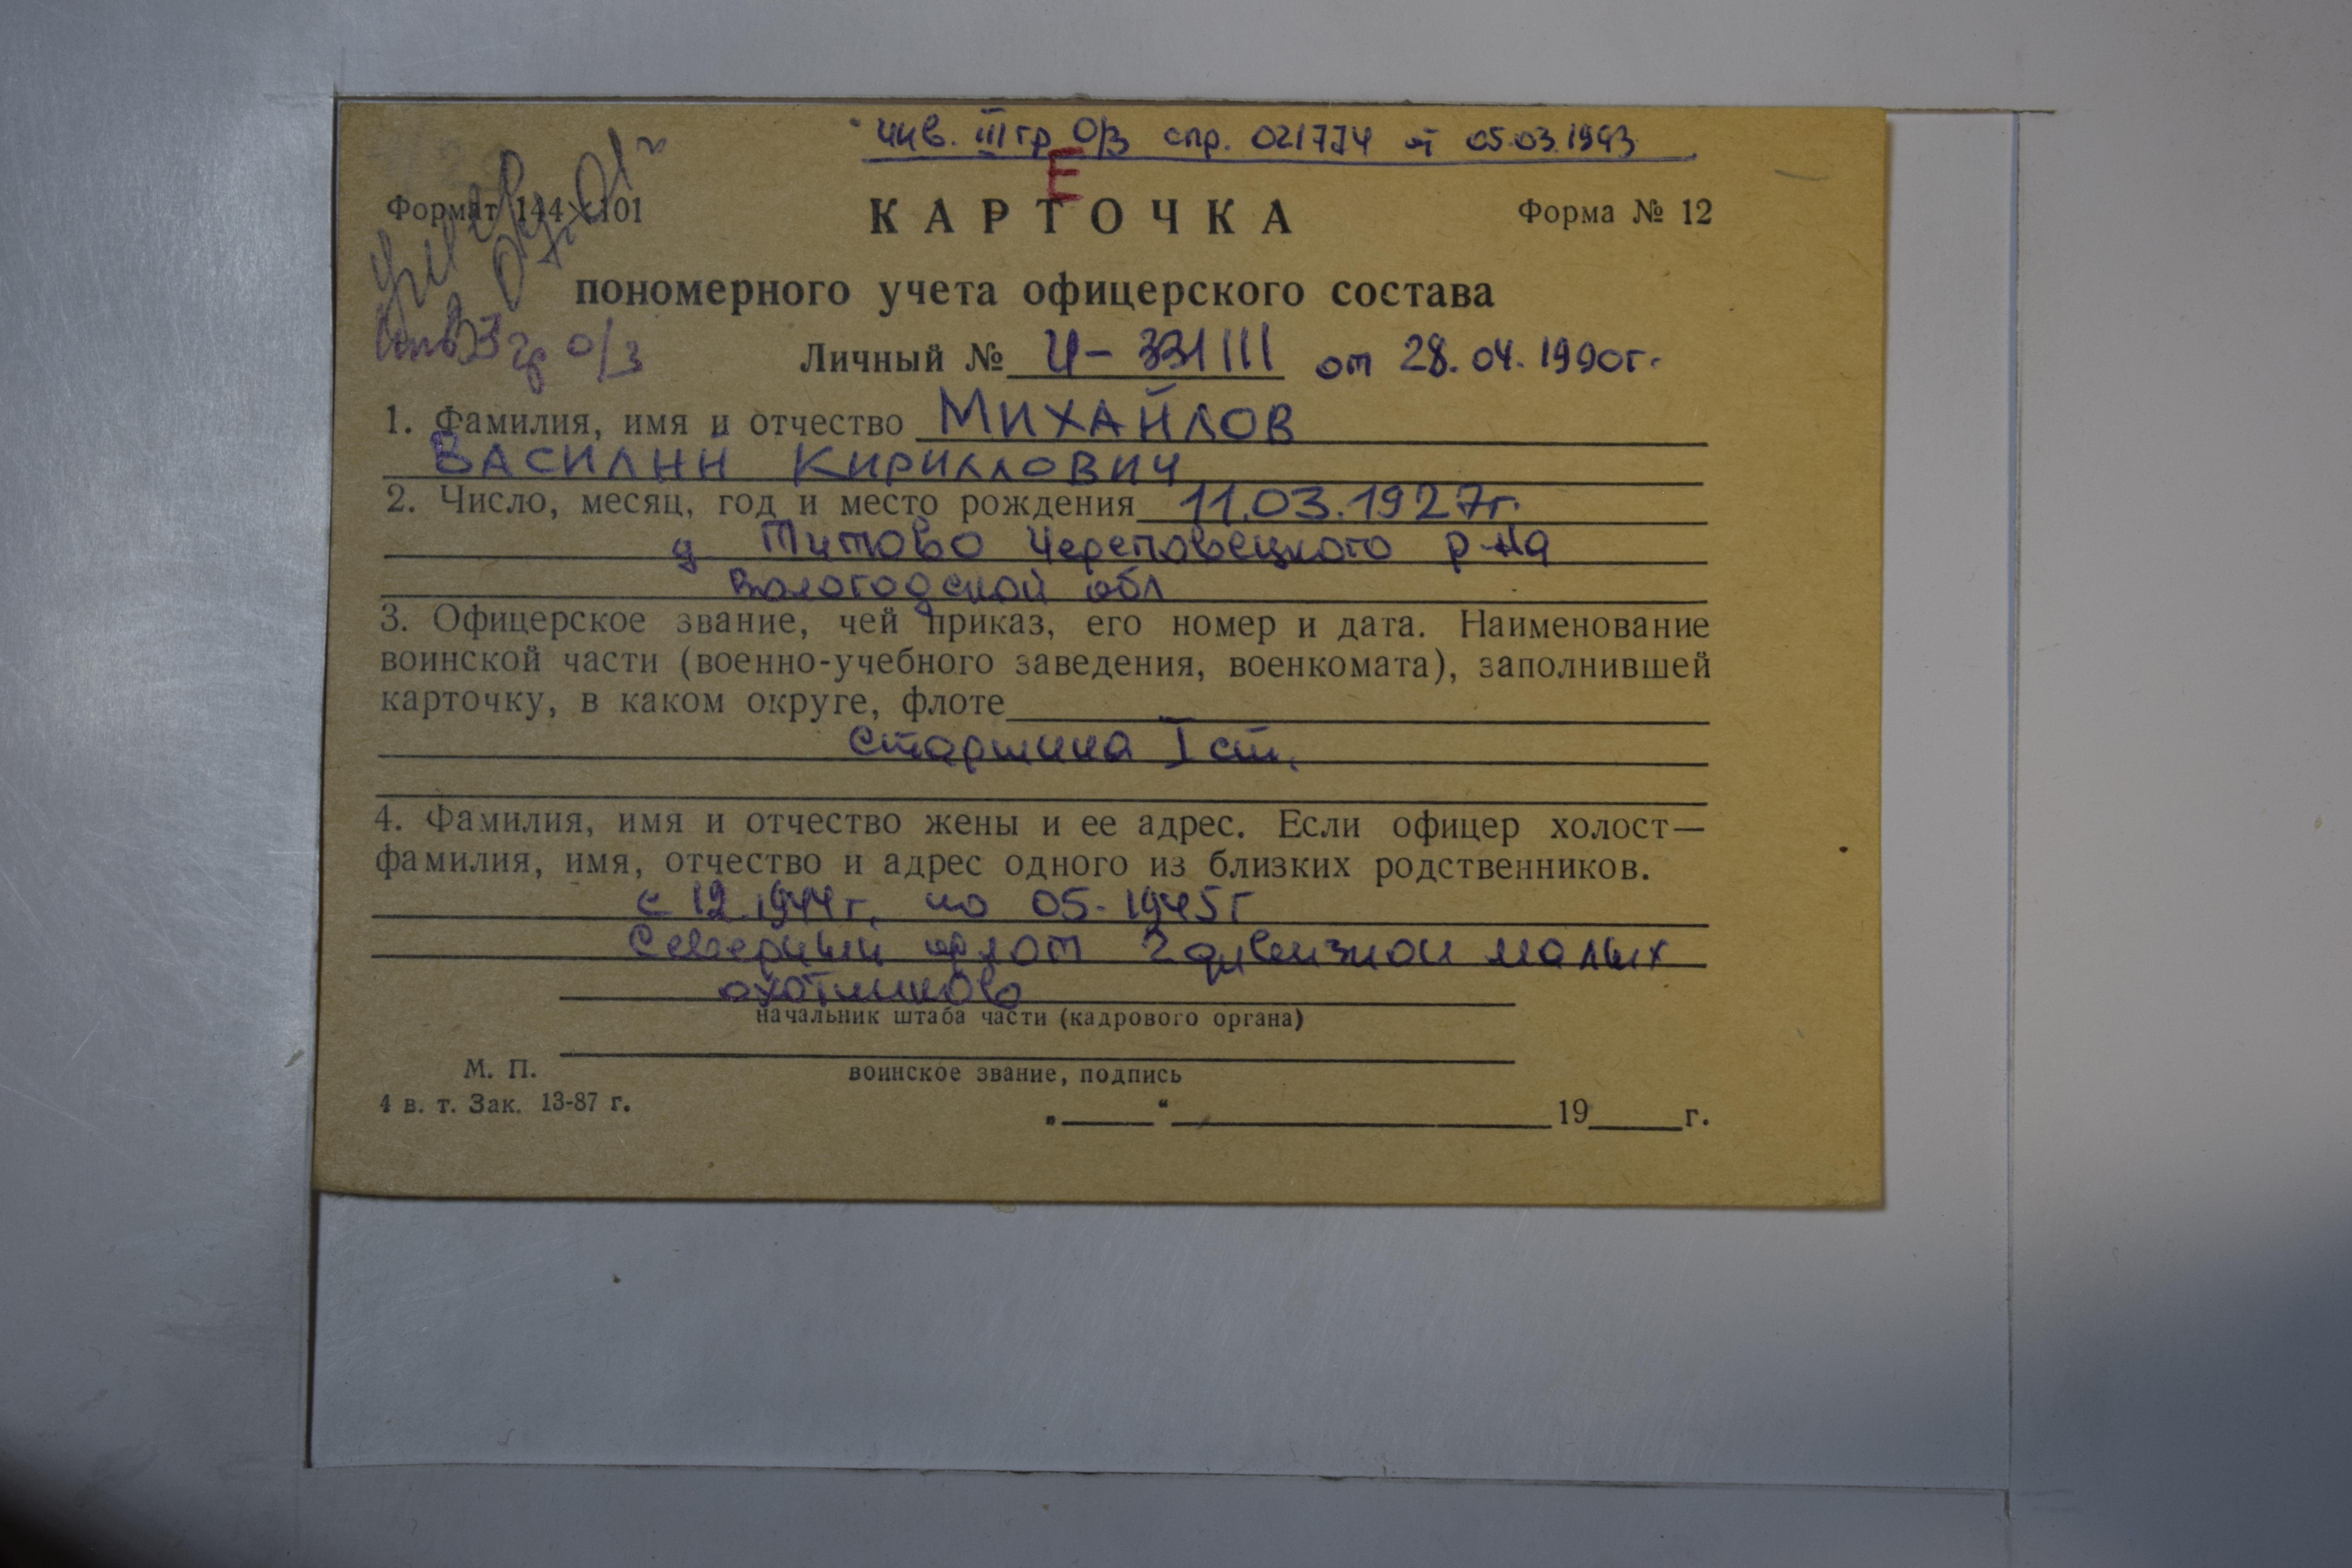 инв. III гр О/З спр. 021774 от 05.03.1993
Е
Формат 144×101
КАРТОЧКА
Форма № 12
пономерного учета офицерского состава
инв 3 гр о/з
Личный № И-331111 от 28.04.1990г.
1. Фамилия, имя и отчество МИХАЙЛОВ
ВАСИЛИЙ КИРИЛЛОВИЧ
2. Число, месяц, год и место рождения 11.03.1927г.
д Титово Череповецкого р-на
Вологодской обл
3. Офицерское звание, чей приказ, его номер и дата. Наименование
воинской части (военно-учебного заведения, военкомата), заполнившей
карточку, в каком округе, флоте
Старшина I ст.
4. Фамилия, имя и отчество жены и ее адрес. Если офицер холост—
фамилия, имя, отчество и адрес одного из близких родственников.
с 12.1944г. по 05-1945г
Северный флот 2 дивизион малых
охотников
начальник штаба части (кадрового органа)
М. П.
воинское звание, подпись
4 в. т. Зак. 13-87 г.
„ “ 19 г.